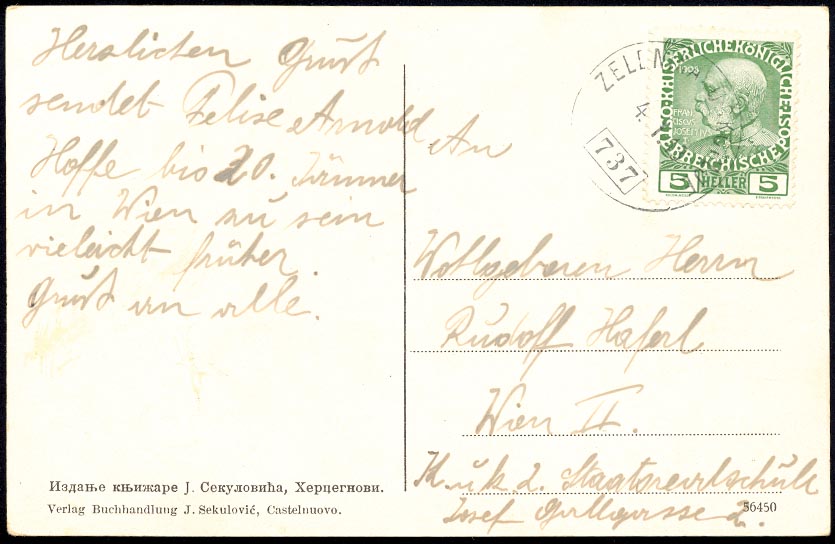 Herzlichen Gruß
sendet Felise Arnold
Hoffe bis 20. Jänner
in Wien zu sein
vieleicht früher.
Gruß an alle.
Издање књижаре Ј. Секуловића, Херцегнови.
Verlag Buchhandlung J. Sekulović, Castelnuovo.
ZELEN
4. 1.
737
KAISERLICHE KÖNIGLICHE ÖSTERREICHISCHE POST
1908
FRAN
CISCVS
JOSEPHVS
5 HELLER 5
An
Wohlgeboren Herrn
Rudolf Haferl
Wien II.
K. u k 2. Staatsrealschule
Josef Gallgasse 2.
56450